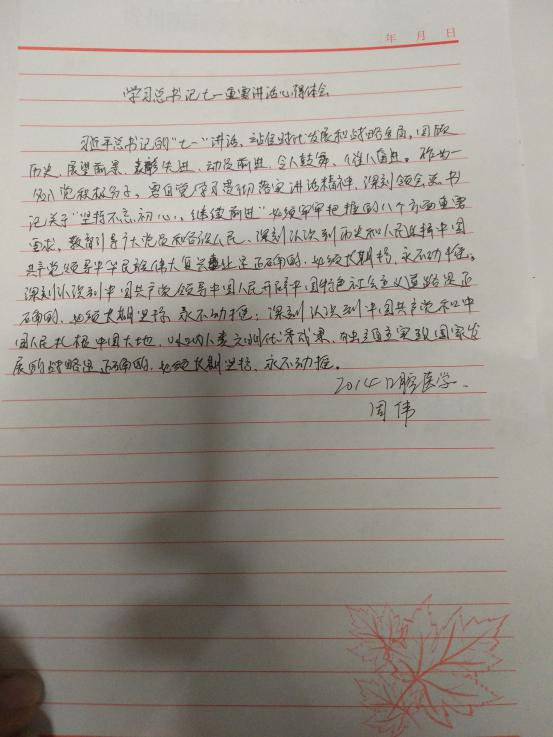 年 月 日
学习总书记七一重要讲话心得体会
习近平总书记的“七一”讲话，站位时代发展和战略全局，回顾
历史，展望前景，表彰先进，动员前进，令人鼓舞、催人奋进。作为一
名入党积极分子，要自觉学习贯彻落实讲话精神，深刻领会总书
记关于“坚持不忘初心、继续前进”必须牢牢把握的八个方面重要
要求，教育引导广大党员和各级人民，深刻认识到历史和人民选择中国
共产党领导中华民族伟大复兴事业是正确的，必须长期坚持，永不动摇。
深刻认识到中国共产党领导中国人民开辟中国特色社会主义道路是正
确的，必须长期坚持，永不动摇；深刻认识到中国共产党和中
国人民扎根中国大地，吸纳人类文明优秀成果，独立自主实现国家发
展的战略是正确的，必须长期坚持、永不动摇。
2014口腔医学
周伟